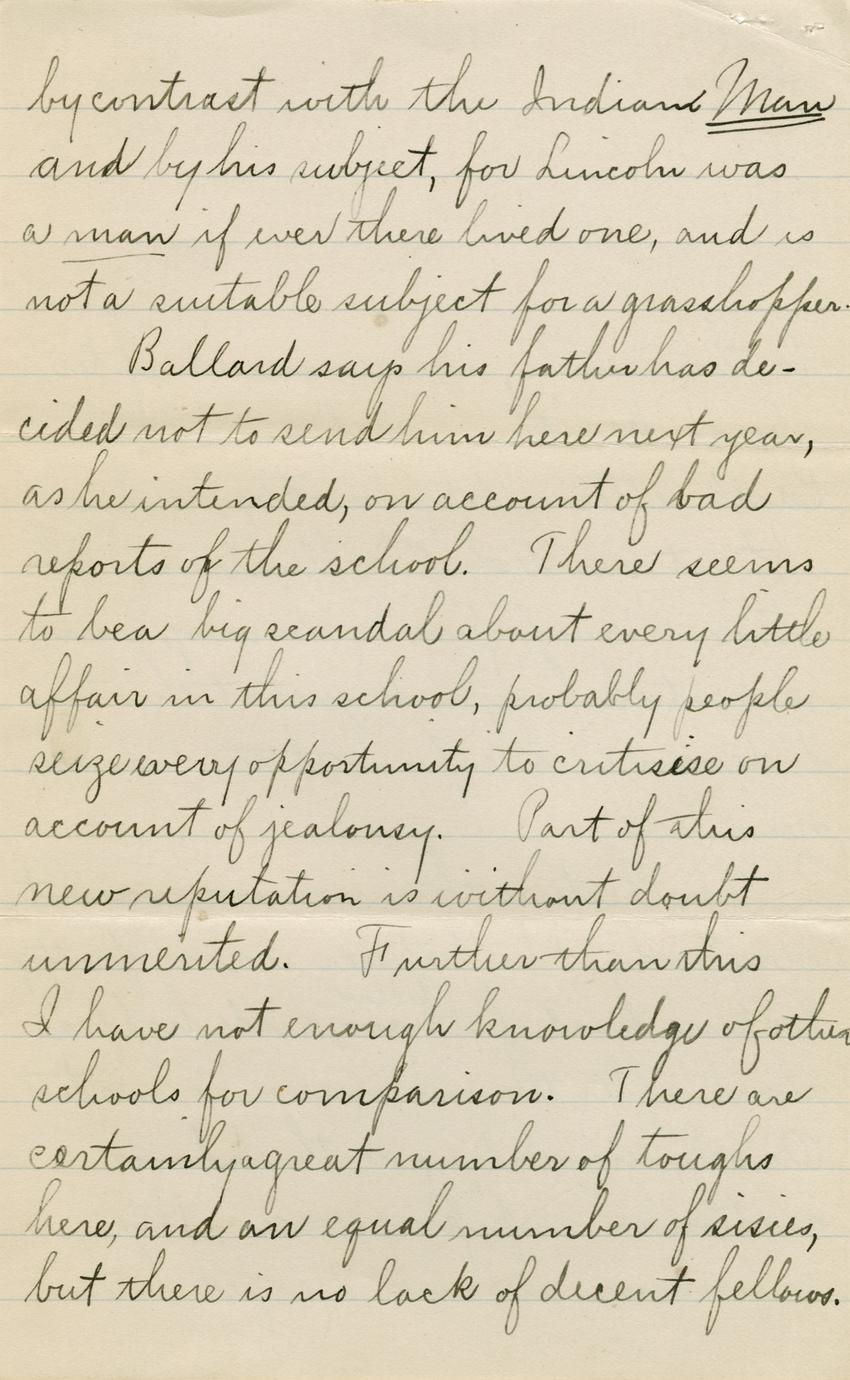 by contrast with the Indiana Man
and by his subject, for Lincoln was
a man if ever there lived one, and is
not a suitable subject for a grasshopper.
Ballard says his father has de-
cided not to send him here next year,
as he intended, on account of bad
reports of the school. There seems
to be a big scandal about every little
affair in this school, probably people
seize every opportunity to critisise on
account of jealousy. Part of this
new reputation is without doubt
unmerited. Further than this
I have not enough knowledge of other
schools for comparison. There are
certainly a great number of toughs
here, and an equal number of sisies,
but there is no lack of decent fellows.